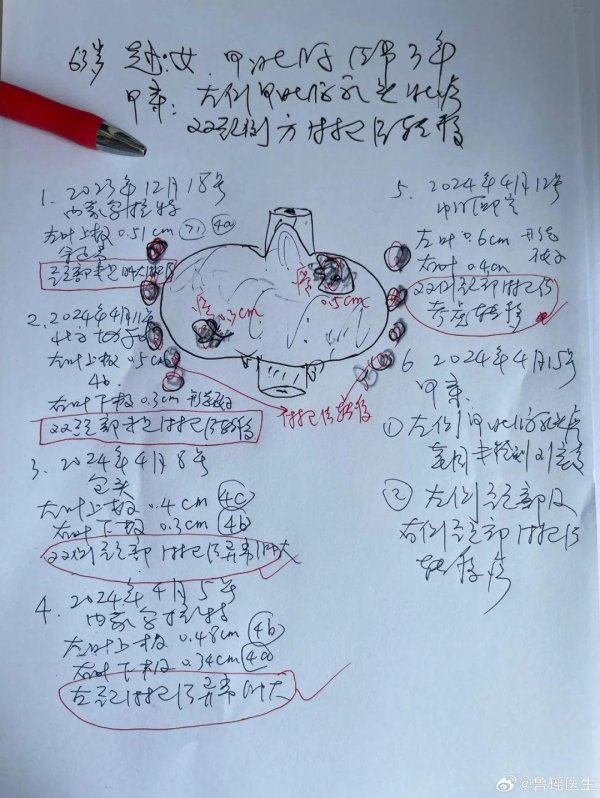 63岁 赵 女 甲状腺结节3年
甲穿: 左侧甲状腺乳头状癌
双颈侧方淋巴结转移
1. 2023年12月18号
内蒙古
左叶上极 0.51cm 4a
颈部未见肿大淋巴结
2. 2024年4月11号
左叶上极 0.5cm
4b
右叶下极 0.3cm
双颈部 淋巴结转移
3. 2024年4月8号
包头
左叶上极 0.4cm 4c
右叶下极 0.3cm 4b
双侧颈部淋巴结异常肿大
4. 2024年4月5号
内蒙古
左叶上极 0.48cm 4b
右叶下极 0.34cm 4a
左颈淋巴结异常肿大
癌
0.3cm
癌
0.5cm
淋巴结转移
5. 2024年4月12号
左叶0.6cm
右叶0.4cm
双侧颈部淋巴结
考虑转移
6 2024年4月15号
甲穿:
① 左侧甲状腺乳头状癌
② 左侧颈部及
右侧颈部淋巴结
转移癌
@鲁瑶医生